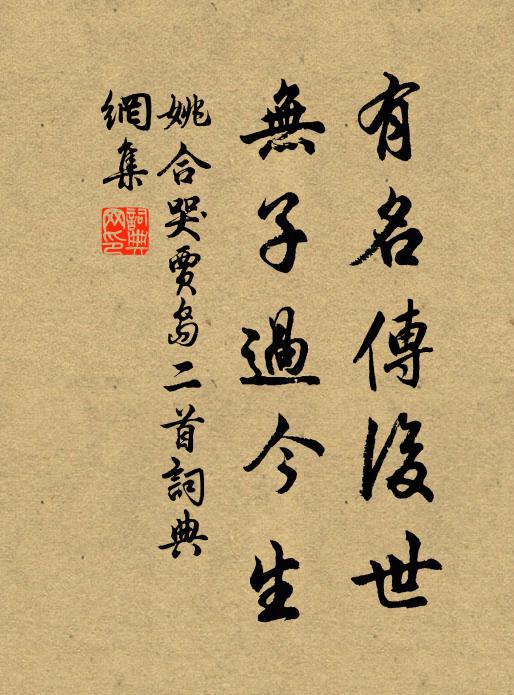 有名傳後世
無子過今生
姚合哭賈島二首詞典
網集
詞典
网印